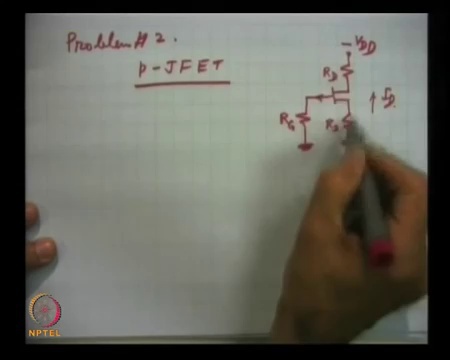 Problem # 2.
p-JFET
-VDD
RD
ID
RG
RS
NPTEL